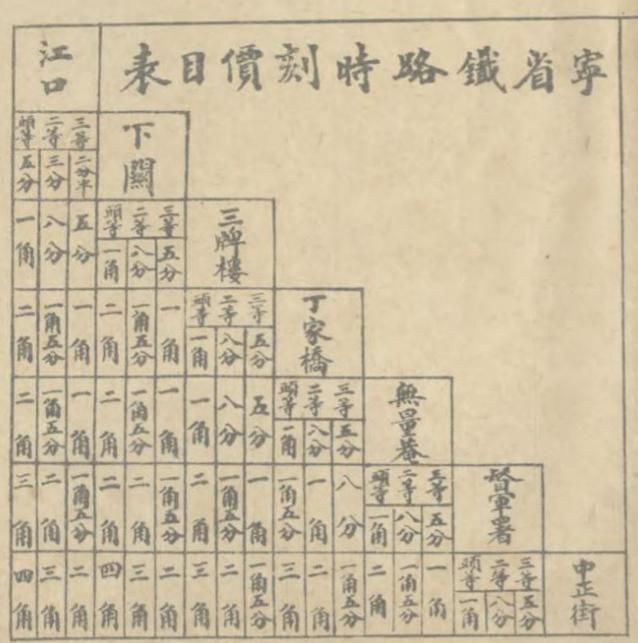 寧省鐵路時刻價目表
江口
頭等 二等 三等 下關
五分 三分 二分半
一角 八分 五分 頭等 二等 三等 三牌樓
一角 八分 五分
二角 一角五分 一角 二角 一角五分 一角 頭等 二等 三等 丁家橋
一角 八分 五分
二角 一角五分 一角 二角 一角五分 一角 一角 八分 五分 頭等 二等 三等 無量菴
一角 八分 五分
三角 二角 一角五分 二角 二角 一角五分 二角 一角五分 一角 一角五分 一角 八分 頭等 二等 三等 督軍署
一角 八分 五分
四角 三角 二角 四角 三角 二角 三角 二角 一角五分 三角 二角 一角五分 二角 一角五分 一角 頭等 二等 三等 中正街
一角 八分 五分